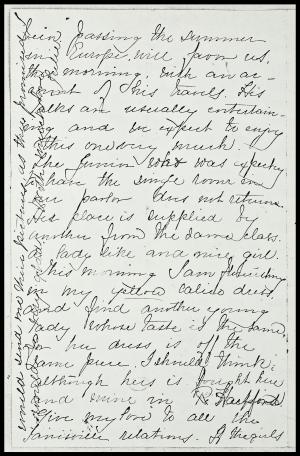 been passing the summer
in Europe, will favor us,
this morning, with an ac-
count of his travels. His
talks are usually entertain-
ing and we expect to enjoy
this one very much.
The Junior was expecting
to have the single room in
our parlor does not return.
Her place is supplied by
another from the same class.
A lady like and nice girl.
This morning I am rejoicing
in my yellow calico dress,
and find another young
lady whose taste is the same,
for her dress is off the
same piece, I should think;
although hers is bought here
and mine in Hartford.
Give my love to all the
relations. If the girls
would send me their pictures as they promised